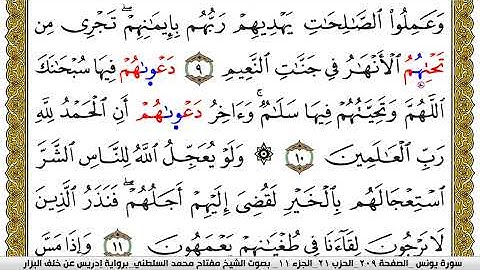 وَعَمِلُواْ الصَّالِحَاتِ يَهْدِيهِمْ رَبُّهُم بِإِيمَانِهِمْ تَجْرِي مِن
تَحْتِهُمُ الأَنْهَارُ فِي جَنَّاتِ النَّعِيمِ ٩ دَعْوَاهُمْ فِيهَا سُبْحَانَكَ
اللَّهُمَّ وَتَحِيَّتُهُمْ فِيهَا سَلَامٌ وَءَاخِرُ دَعْوَاهُمْ أَنِ الْحَمْدُ لِلَّهِ
رَبِّ الْعَالَمِينَ ١٠ وَلَوْ يُعَجِّلُ اللَّهُ لِلنَّاسِ الشَّرَّ
اسْتِعْجَالَهُم بِالْخَيْرِ لَقُضِيَ إِلَيْهِمْ أَجَلُهُمْ فَنَذَرُ الَّذِينَ
لَا يَرْجُونَ لِقَاءَنَا فِي طُغْيَانِهِمْ يَعْمَهُونَ ١١ وَإِذَا مَسَّ
سورة يونس _الصفحة ٢٠٩_ الحزب ٢١_ الجزء ١١_ بصوت الشيخ مفتاح محمد السلطني_ برواية إدريس عن خلف البزار